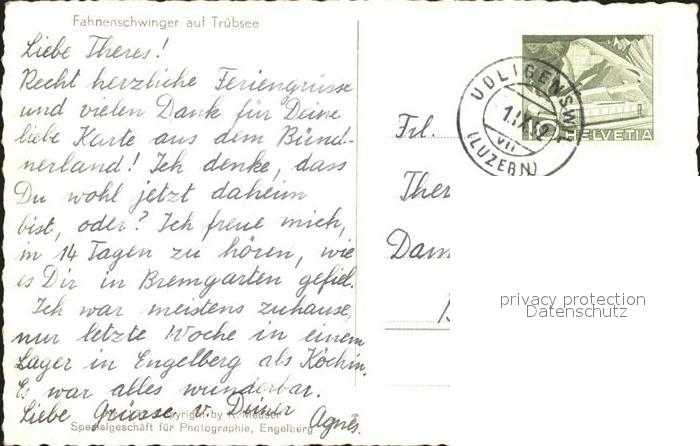 Fahnenschwinger auf Trübsee
Liebe Theres!
Recht herzliche Feriengrüsse
und vielen Dank für Deine
liebe Karte aus dem Bünd-
nerland! Ich denke, dass
Du wohl jetzt daheim
bist, oder? Ich freue mich,
in 14 Tagen zu hören, wie
es Dir in Bremgarten gefiel.
Ich war meistens zuhause,
nur letzte Woche in einem
Lager in Engelberg als Köchin.
Es war alles wunderbar.
Liebe Grüsse v. Deiner Agnes.
Copyright by
Spezialgeschäft für Photographie, Engelberg
UDLIGENSWIL
1.IX.52
VII
(LUZERN)
HELVETIA
Frl.
Ther
Dam
privacy protection
Datenschutz